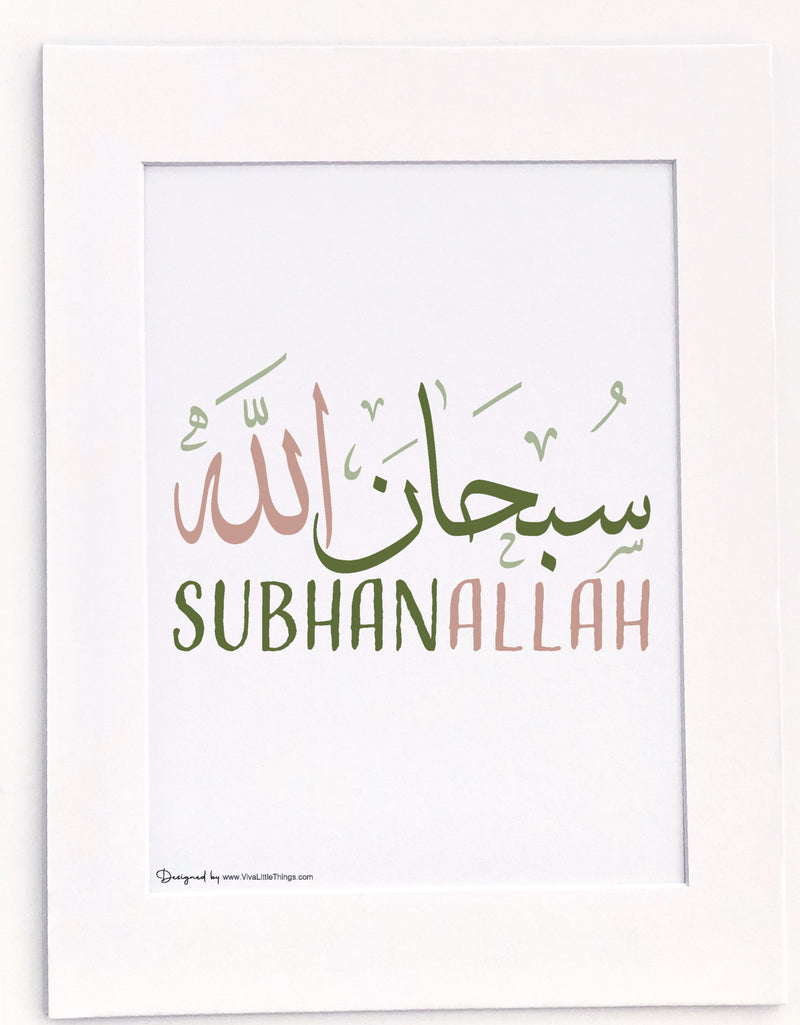 سُبحَانَ اللَّه
SUBHANALLAH
Designed by www.VivaLittleThings.com